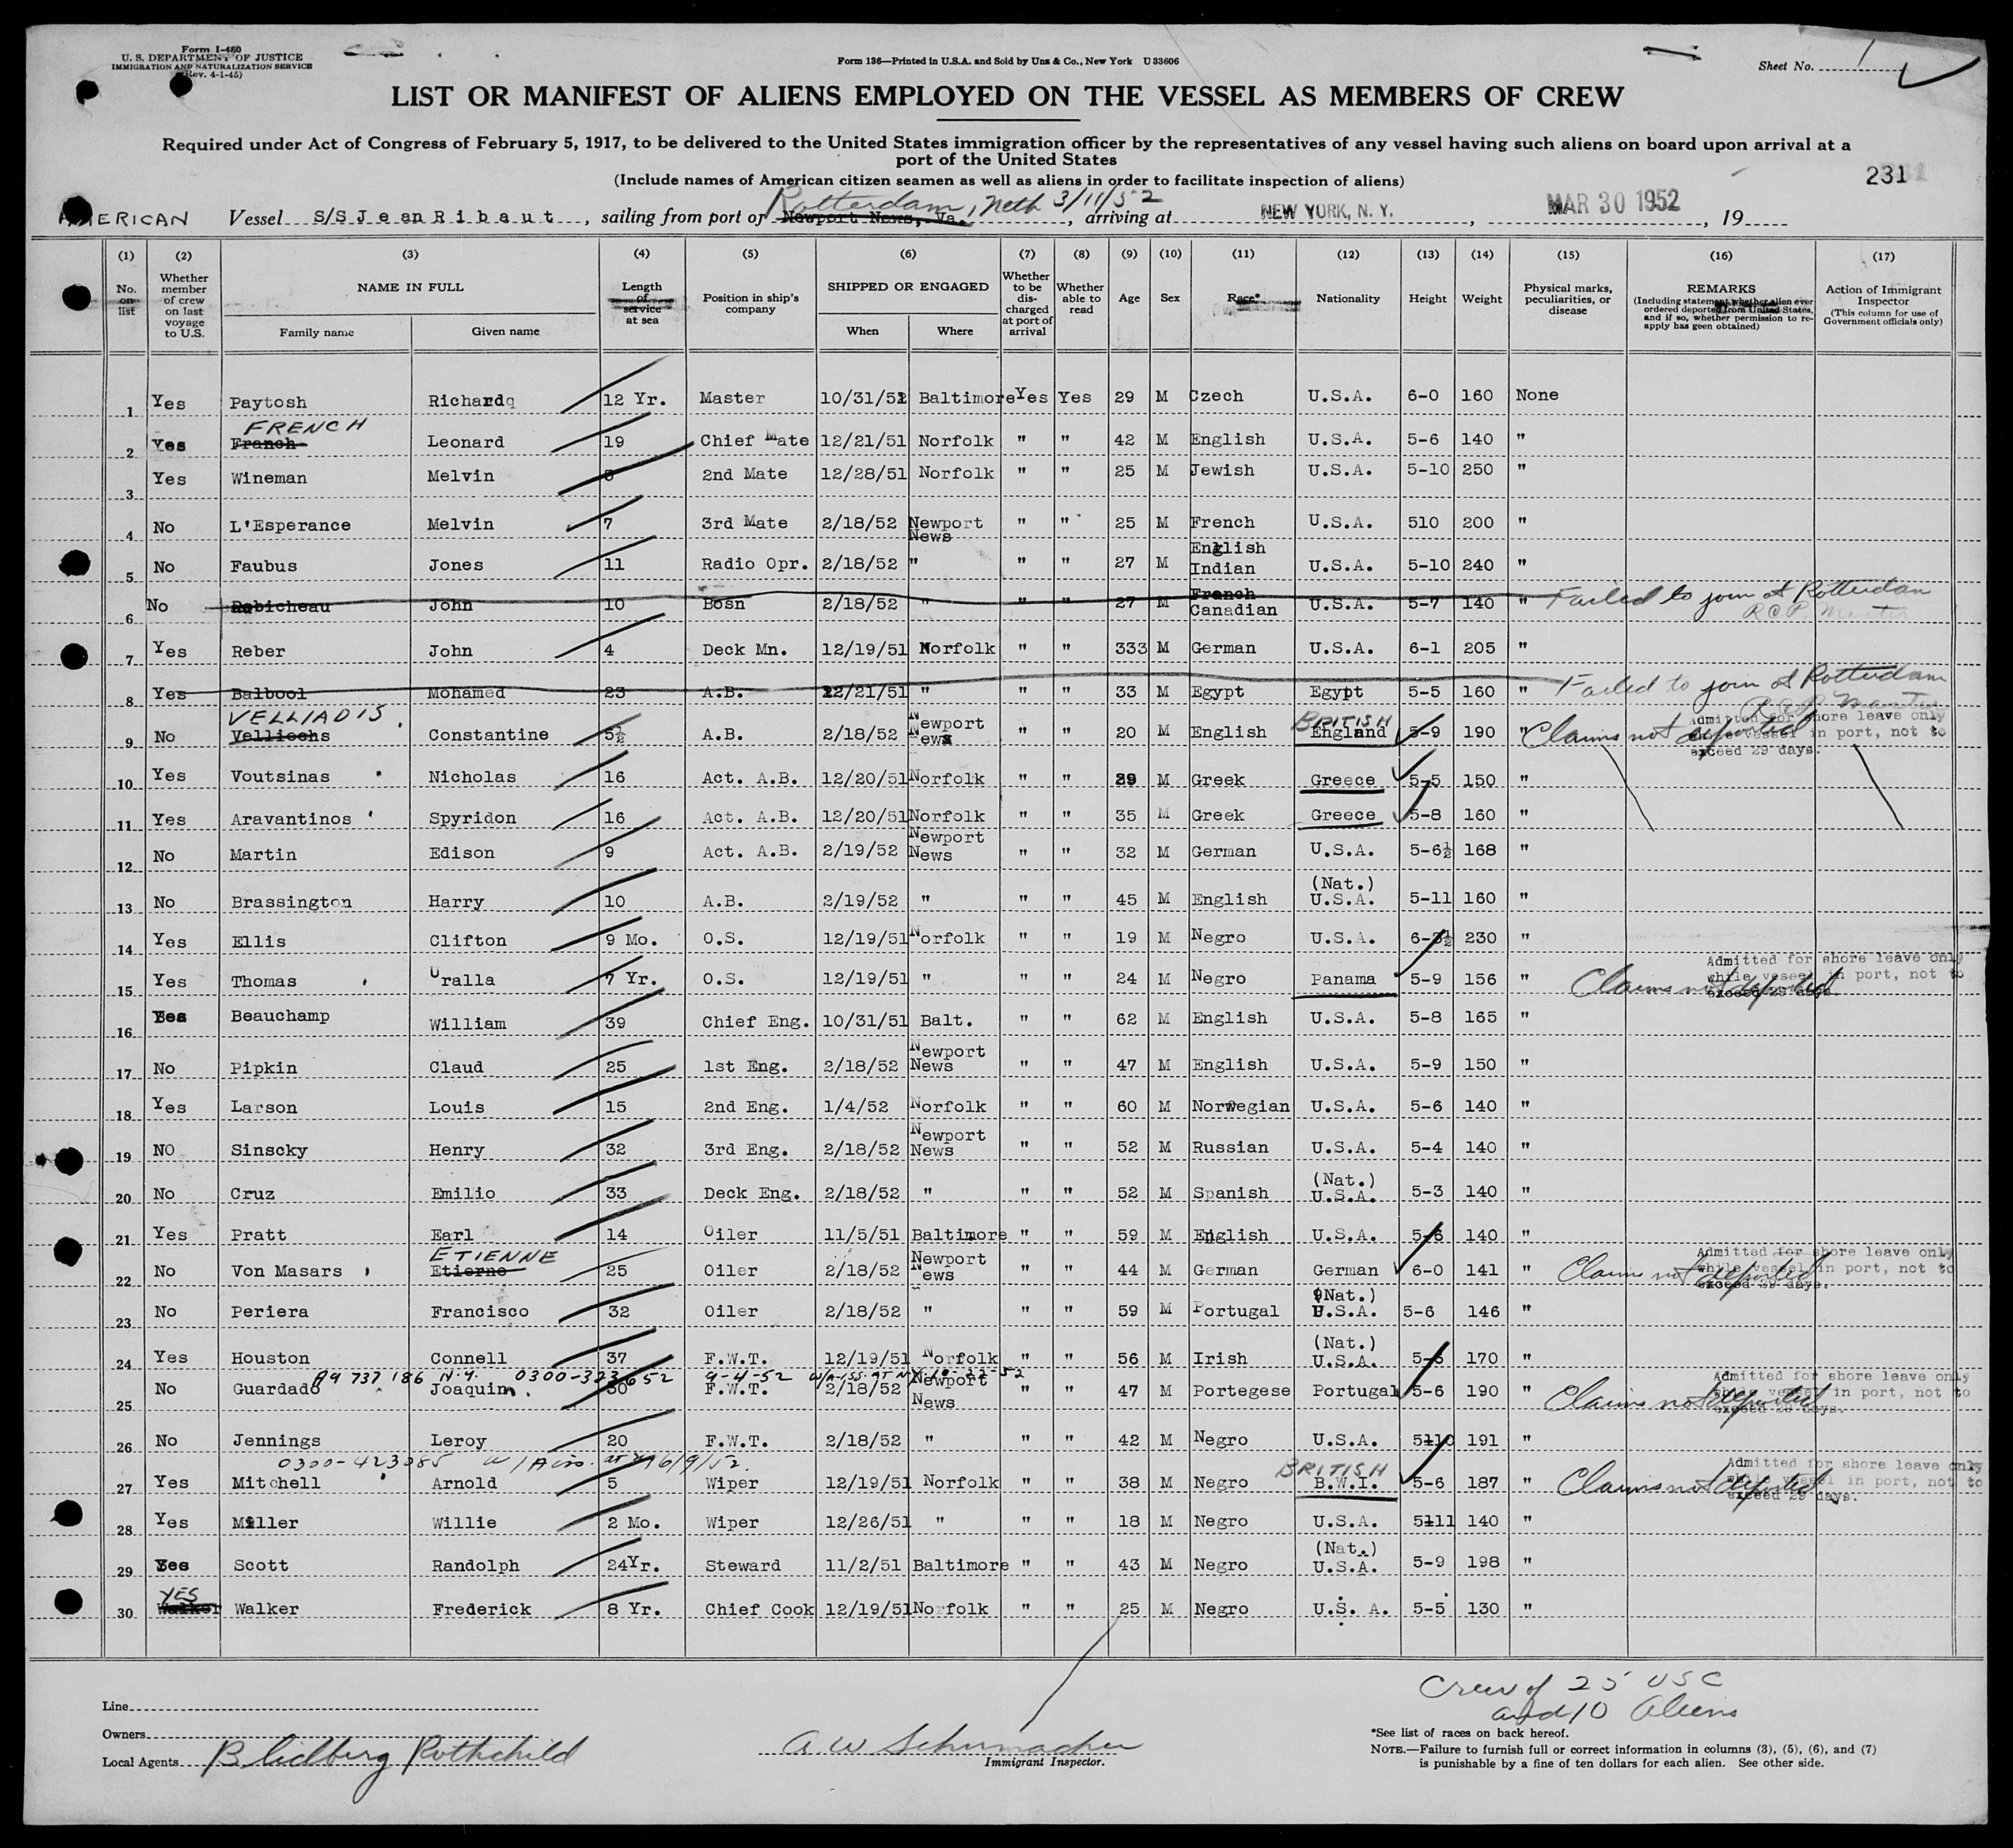 Form I-480
U. S. DEPARTMENT OF JUSTICE
IMMIGRATION AND NATURALIZATION SERVICE
(Rev. 4-1-45)
Form 136—Printed in U.S.A. and Sold by Unz & Co., New York U 33606
Sheet No. 1
LIST OR MANIFEST OF ALIENS EMPLOYED ON THE VESSEL AS MEMBERS OF CREW
Required under Act of Congress of February 5, 1917, to be delivered to the United States immigration officer by the representatives of any vessel having such aliens on board upon arrival at a
port of the United States
(Include names of American citizen seamen as well as aliens in order to facilitate inspection of aliens)
231
AMERICAN Vessel S/S Jean Ribaut, sailing from port of Rotterdam, Neth 3/11/52 Newport News, Va., arriving at NEW YORK, N. Y., MAR 30 1952, 19
(1) (2) (3) (4) (5) (6) (7) (8) (9) (10) (11) (12) (13) (14) (15) (16) (17)
No. on list
Whether member of crew on last voyage to U.S.
NAME IN FULL
Family name
Given name
Length of service at sea
Position in ship's company
SHIPPED OR ENGAGED
When
Where
Whether to be discharged at port of arrival
Whether able to read
Age
Sex
Race*
Nationality
Height
Weight
Physical marks, peculiarities, or disease
REMARKS
(Including statement whether alien ever ordered deported from United States, and if so, whether permission to reapply has geen obtained)
Action of Immigrant Inspector
(This column for use of Government officials only)
1 Yes Paytosh Richard 12 Yr. Master 10/31/51 Baltimore Yes Yes 29 M Czech U.S.A. 6-0 160 None
FRENCH
2 Yes Franch Leonard 19 Chief Mate 12/21/51 Norfolk " " 42 M English U.S.A. 5-6 140 "
3 Yes Wineman Melvin 2nd Mate 12/28/51 Norfolk " " 25 M Jewish U.S.A. 5-10 250 "
4 No L'Esperance Melvin 7 3rd Mate 2/18/52 Newport News " " 25 M French U.S.A. 510 200 "
5 No Faubus Jones 11 Radio Opr. 2/18/52 " " " 27 M English Indian U.S.A. 5-10 240 "
6 No Robicheau John 10 Bosn 2/18/52 " " " 27 M French Canadian U.S.A. 5-7 140 " Failed to join at Rotterdam
7 Yes Reber John 4 Deck Mn. 12/19/51 Norfolk " " 333 M German U.S.A. 6-1 205 "
8 Yes Balbool Mohamed 23 A.B. 12/21/51 " " " 33 M Egypt Egypt 5-5 160 " Failed to join at Rotterdam
VELLIADIS BRITISH
9 No Constantine 5½ A.B. 2/18/52 Newport News " " 20 M English England 5-9 190 " Claims not deported Admitted for shore leave only while vessel in port, not to exceed 29 days.
10 Yes Voutsinas Nicholas 16 Act. A.B. 12/20/51 Norfolk " " 39 M Greek Greece 5-5 150 "
11 Yes Aravantinos Spyridon 16 Act. A.B. 12/20/51 Norfolk " " 35 M Greek Greece 5-8 160 "
12 No Martin Edison 9 Act. A.B. 2/19/52 Newport News " " 32 M German U.S.A. 5-6½ 168 "
13 No Brassington Harry 10 A.B. 2/19/52 " " " 45 M English (Nat.) U.S.A. 5-11 160 "
14 Yes Ellis Clifton 9 Mo. O.S. 12/19/51 Norfolk " " 19 M Negro U.S.A. 6-3½ 230 "
15 Yes Thomas Uralla 7 Yr. O.S. 12/19/51 " " " 24 M Negro Panama 5-9 156 " Claims not deported Admitted for shore leave only while vessel in port, not to exceed 29 days.
16 Yes Beauchamp William 39 Chief Eng. 10/31/51 Balt. " " 62 M English U.S.A. 5-8 165 "
17 No Pipkin Claud 25 1st Eng. 2/18/52 Newport News " " 47 M English U.S.A. 5-9 150 "
18 Yes Larson Louis 15 2nd Eng. 1/4/52 Norfolk " " 60 M Norwegian U.S.A. 5-6 140 "
19 NO Sinscky Henry 32 3rd Eng. 2/18/52 Newport News " " 52 M Russian U.S.A. 5-4 140 "
20 No Cruz Emilio 33 Deck Eng. 2/18/52 " " " 52 M Spanish (Nat.) U.S.A. 5-3 140 "
21 Yes Pratt Earl 14 Oiler 11/5/51 Baltimore " " 59 M English U.S.A. 5-6 140 "
ETIENNE
22 No Von Masars Etierno 25 Oiler 2/18/52 Newport News " " 44 M German German 6-0 141 " Claims not deported Admitted for shore leave only while vessel in port, not to exceed 29 days.
23 No Periera Francisco 32 Oiler 2/18/52 " " " 59 M Portugal (Nat.) U.S.A. 5-6 146 "
24 Yes Houston Connell 37 F.W.T. 12/19/51 Norfolk " " 56 M Irish (Nat.) U.S.A. 5-6 170 "
A9 737 186 N.Y. 0300-323652 9-4-52
25 No Guardado Joaquin 30 F.W.T. 2/18/52 Newport News " " 47 M Portegese Portugal 5-6 190 " Claims not deported Admitted for shore leave only while vessel in port, not to exceed 29 days.
26 No Jennings Leroy 20 F.W.T. 2/18/52 " " " 42 M Negro U.S.A. 5110 191 "
0300-423085 6/9/52 BRITISH
27 Yes Mitchell Arnold 5 Wiper 12/19/51 Norfolk " " 38 M Negro B.W.I. 5-6 187 " Claims not deported Admitted for shore leave only while vessel in port, not to exceed 29 days.
28 Yes Miller Willie 2 Mo. Wiper 12/26/51 " " " 18 M Negro U.S.A. 5111 140 "
29 Yes Scott Randolph 24Yr. Steward 11/2/51 Baltimore " " 43 M Negro (Nat.) U.S.A. 5-9 198 "
YES
30 Walker Walker Frederick 8 Yr. Chief Cook 12/19/51 Norfolk " " 25 M Negro U.S. A. 5-5 130 "
Crew of 25 USC
and 10 Aliens
Line
Owners
Local Agents Blidberg Rothchild
A.W Schumacher
Immigrant Inspector.
*See list of races on back hereof.
NOTE.—Failure to furnish full or correct information in columns (3), (5), (6), and (7)
is punishable by a fine of ten dollars for each alien. See other side.